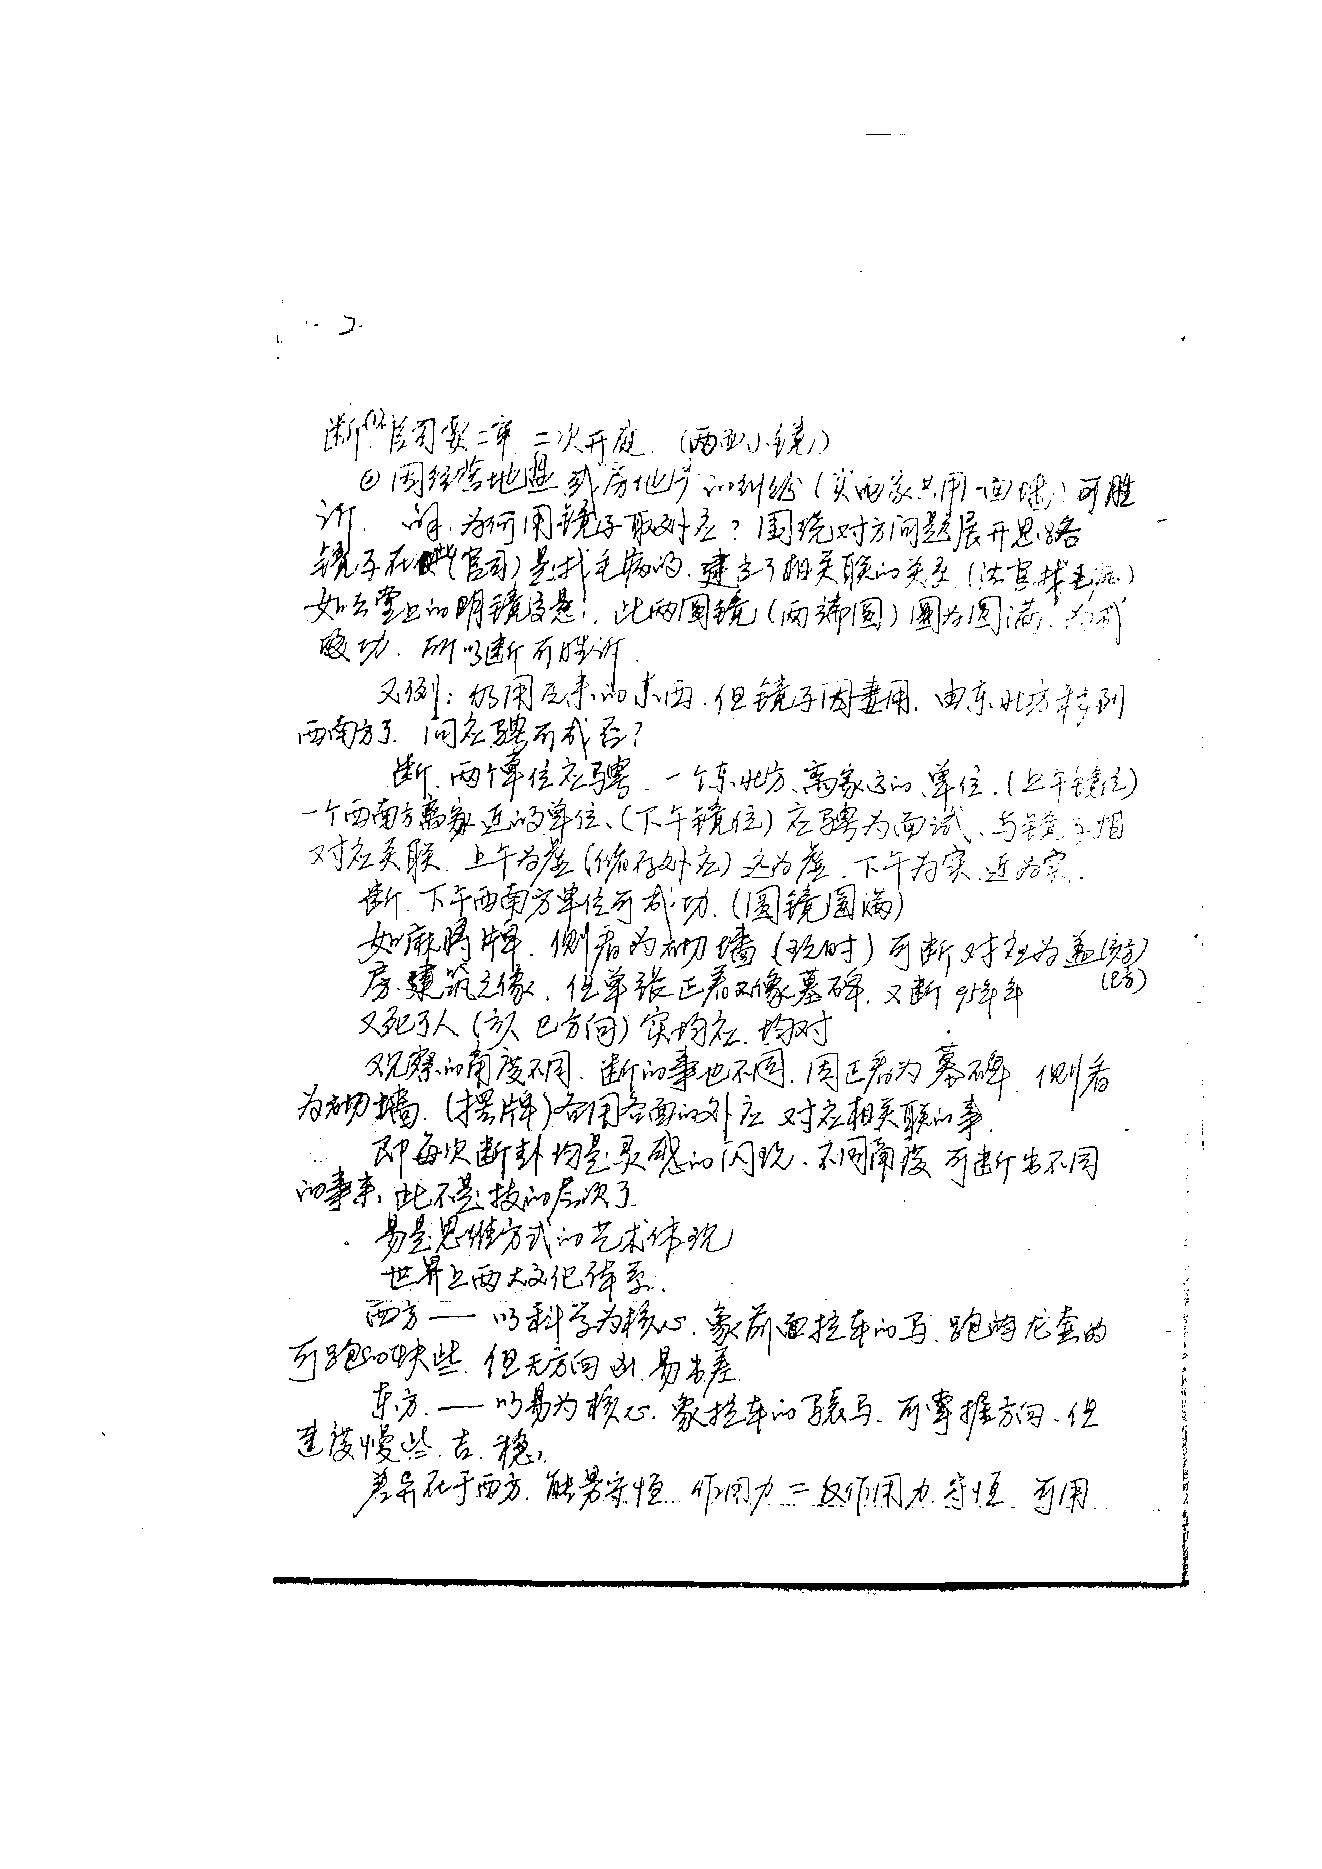 断(1)官司要二审 二次开庭.(两至小镜)
② 因经营地盘或房地产的纠纷(实两家共用一面墙)可胜
诉. 解.为何用镜子取外应?围绕对方问题展开思路
镜子在(官司)是找毛病的.建立了相关联的关系(法官找毛病)
如公堂上的明镜高悬!.此两圆镜(两端圆)圆为圆满.为成
功.所以断可胜诉.
又例:仍用原来的东西.但镜子因妻用.由东北方移到
西南方了.问应聘可成否?
断.两个单位应聘.一个东北方、离家远的单位.(上午镜位)
一个西南方离家近的单位、(下午镜位)应聘为面试、与镜子相
对应关联.上午为虚(储存外应)远为虚.下午为实、近为实.
断.下午西南方单位可成功.(圆镜圆满)
如麻将牌.侧看为砌墙(现时)可断对应为盖(亥方)
房.建筑之像.但单张正看又像墓碑.又断95年年 (巳方)
又死了人(亥 巳方向)实均应.均对
观察的角度不同.断的事也不同.因正看为墓碑.侧看
为砌墙.(摆牌)各用各面的外应 对应相关联的事.
即每次断卦均是灵感的闪现.不同角度可断出不同
的事来.此不是技的层次了.
易是思维方式的艺术体现
世界上两大文化体系.
西方 —— 以科学为核心.象前面拉车的马.跑
可跑的快些.但无方向 凶.易出差
东方. —— 以易为核心.象拉车的辕马.可掌握方向.但
速度慢些.吉.稳.
差异在于西方.能量守恒.作用力=反作用力.守恒.可用